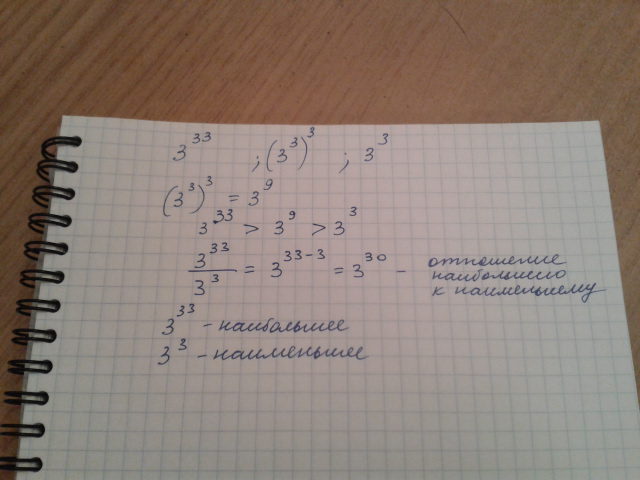 3³³ ; (3³)³ ; 3³
(3³)³ = 3⁹
3³³ > 3⁹ > 3³
3³³/3³ = 3³³⁻³ = 3³⁰ – отношение
наибольшего
к наименьшему
3³³ – наибольшее
3³ – наименьшее